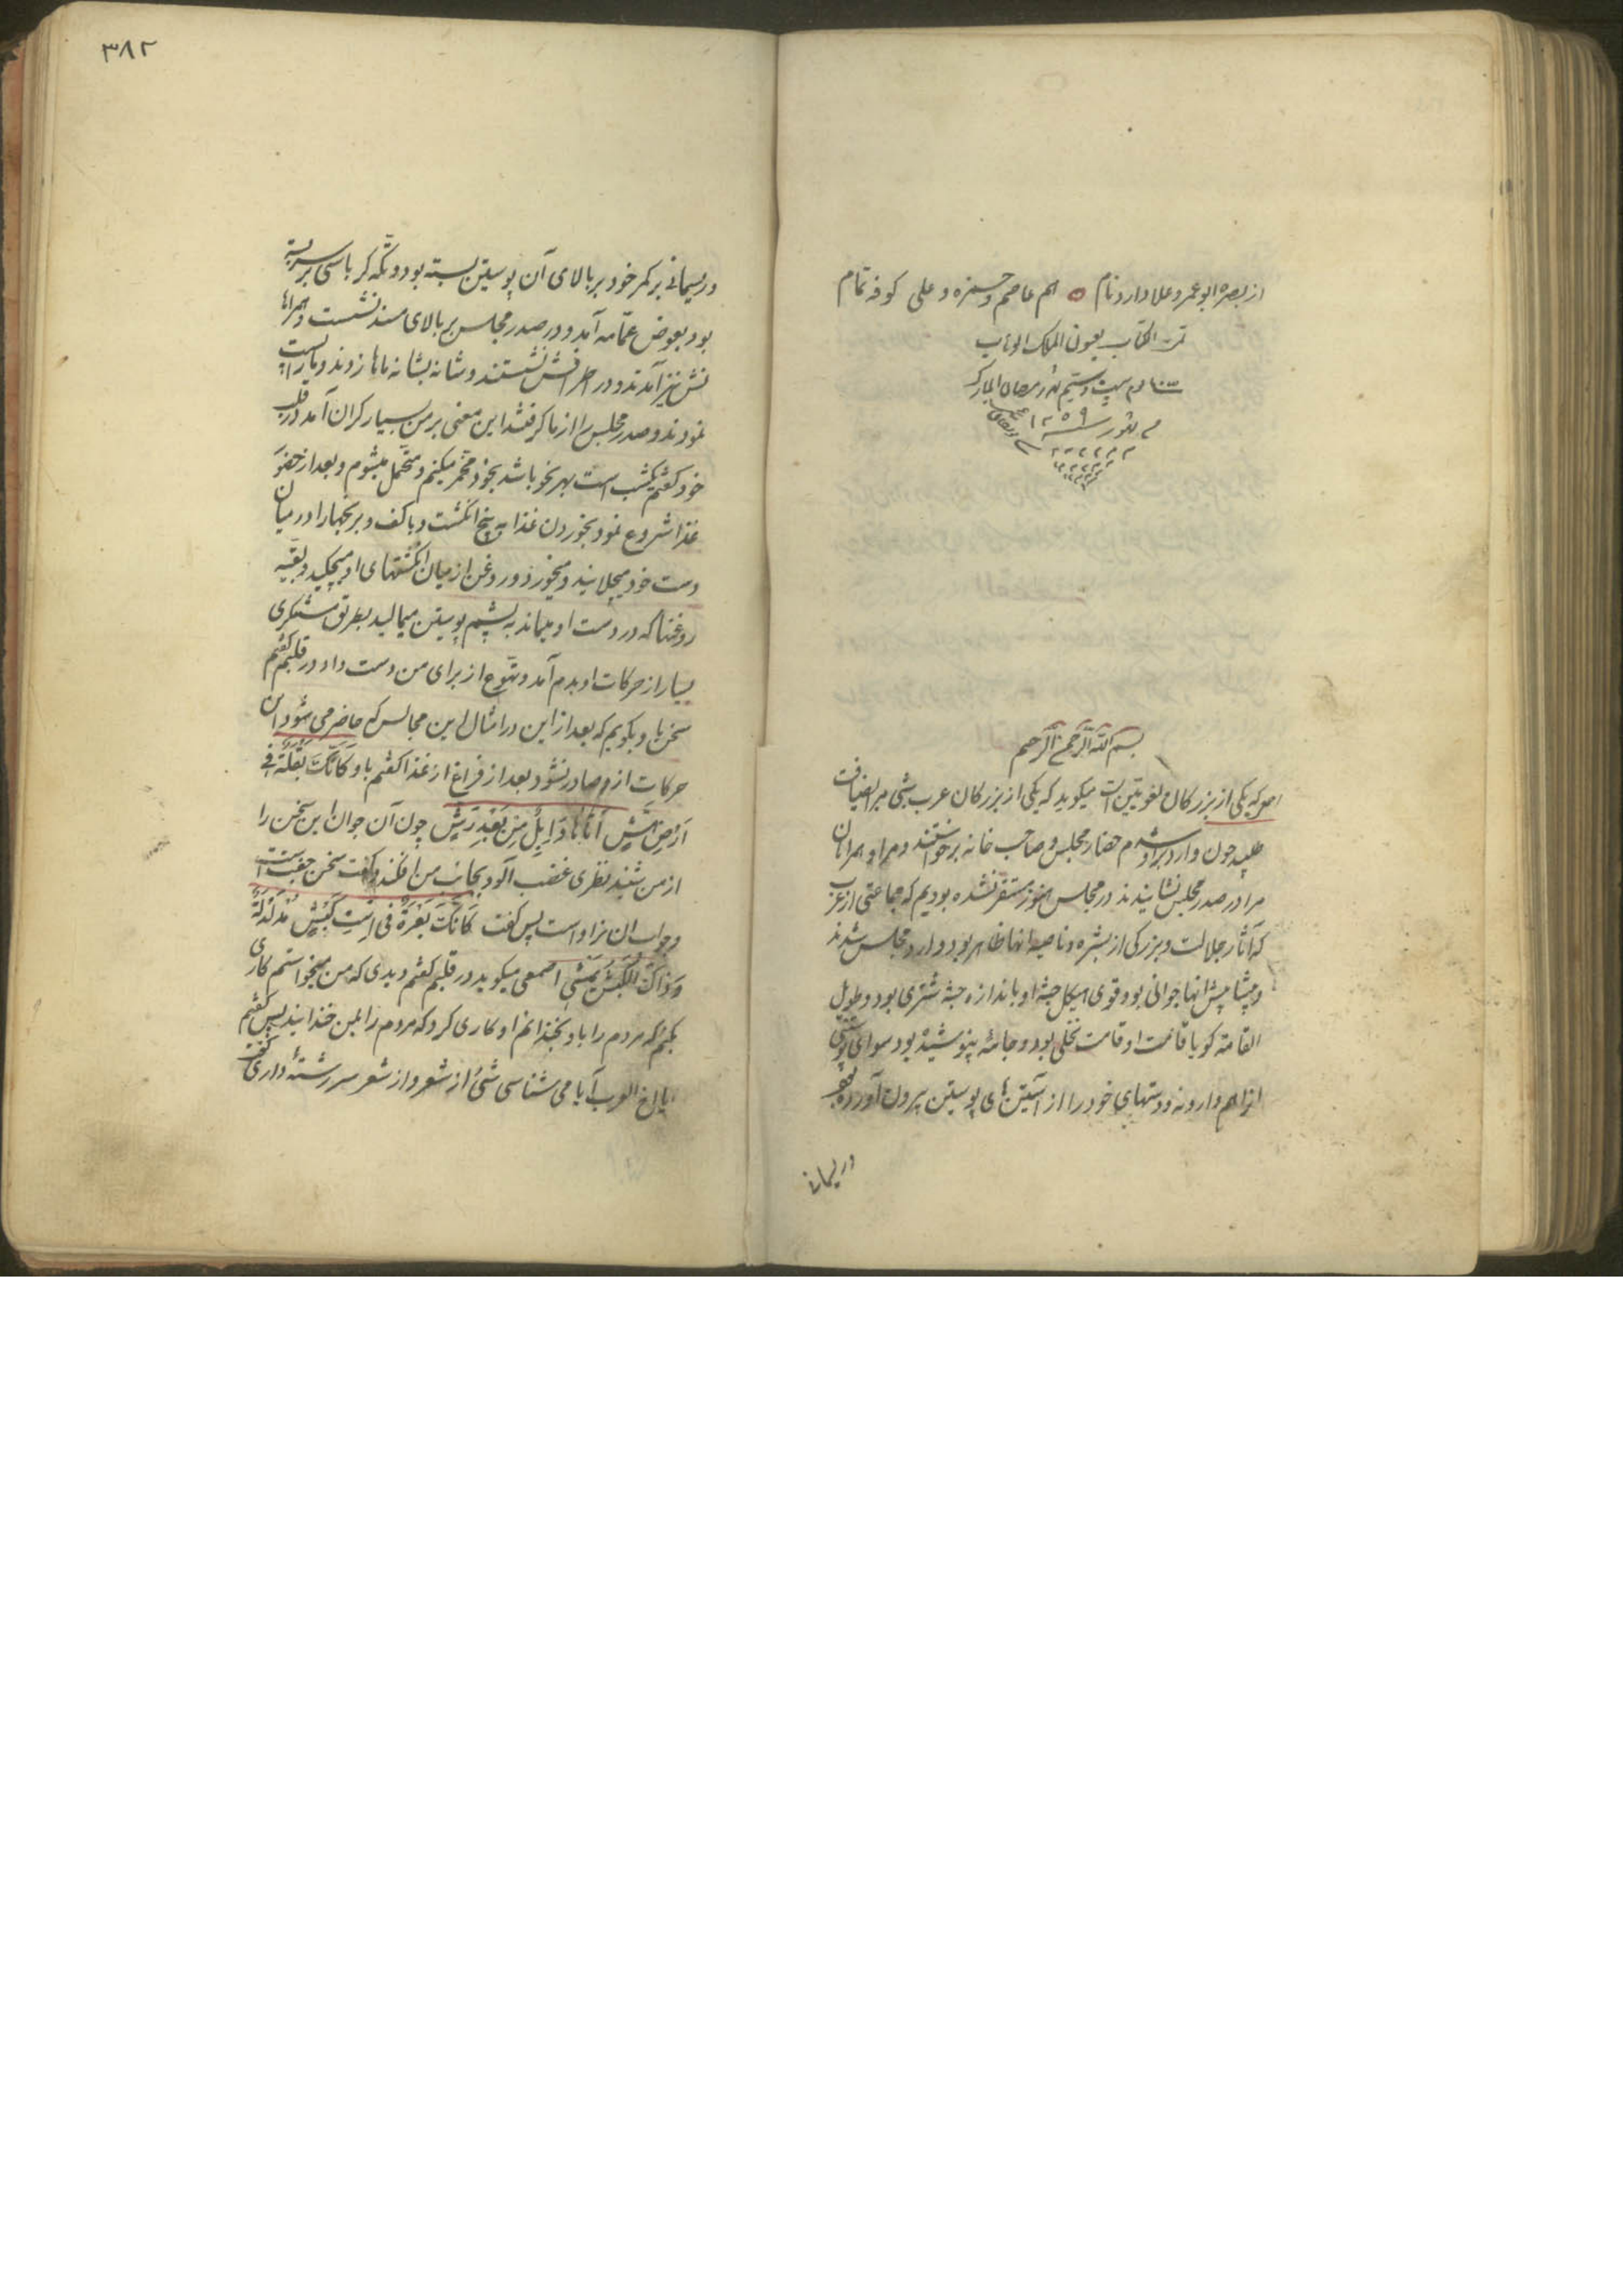 از بصره ابو عمرو علا دارد نام ه هم عاصم و حمزه و علی کوفه تمام
تمت الکتاب بعون الملک الوهاب
بیست و سیم شهر رمضان المبارک
شهور سنه ۱۲۵۹
بسم الله الرحمن الرحیم
که یکی از بزرکان لغویتین است میکوید که یکی از بزرکان عرب شبی مرا بضیافت
طلبید چون وارد براو شدم حضار مجلس و صاحب خانه برخواستند و مرا و همراهان
مرا در صدر مجلس نشانیدند در مجلس هنوز مستقر نشده بودیم که جماعتی از عرب
که آثار جلالت و بزرکی از بشره و ناصیه انها ظاهر بود وارد مجلس شدند
و پیشاپیش انها جوانی بود قوی هیکل جثه او باندازه جثه شتری بود و طویل
القامته کویا قامت او قامت نخلی بود و جامهٔ نپوشیده بود سوای پوستینی
انرا هم وارونه و دستهای خود را از آستین های پوستین بیرون آورده بود
وریسمانی
۳۸۲
وریسمانی بر کمر خود بر بالای آن پوستین بسته بود و تکه کرباسی بر سر بسته
بود بعوض عمّامه آمد و در صدر مجلس بر بالای مسند نشست و همراها
نش نیز آمدند و در اطرافش نشستند و شانه بشانه ماها زدند و ما را پست
نمودند و صدر مجلس را از ما کرفتند این معنی بر من بسیار کران آمد در قلب
خود کفتم یکشب است بهر نحو باشد بخود مخمر میکنم و متحمل میشوم و بعد از حضور
غذا شروع نمود بخوردن غذا به پنج انکشت و با کف و برنجها را در میان
دست خود میچلانید و میخورد و روغن از میان انکشتهای او میچکید و بقیه
روغنها که در دست او میماند به پشم پوستین میمالید بطریق مستنکری
بسیار از حرکات او بدم آمد و تهوع از برای من دست داد در قلبم کفتم
سخن باو بکویم که بعد از این در امثال این مجالس که حاضر می شود ان
حرکات ازو صادر نشود بعد از فراغ از غذا کفتم باو کَاَنَّکَ بَقْلَةٌ فی
اَرْضِ هَشٍّ اَتَاهَا وَابِلٌ مِنْ بَعْدِ رَشٍّ چون آن جوان این سخن را
از من شنید نظری غضب آلود بجانب من افکند و کفت سخن جفت است
وجواب ان سزاوار است پس کفت کَاَنَّکَ بَعْرَةٌ فی اِسْتِ کَبْشٍ مُدَلَّلَةٌ
وَذَاکَ الْکَبْشُ یَمْشِی اصمعی میکوید در قلبم کفتم دیدی که من میخواستم کاری
بکنم که مردم را باو بخندانم او کاری کرد که مردم را بمن خندانید پس کفتم
یا اخ العرب آیا می شناسی شیٔ از شعر و از شعر سر رشتهٔ داری کفت